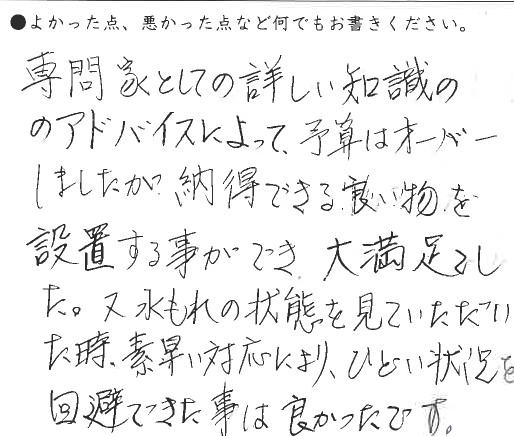 ●よかった点、悪かった点など何でもお書きください。
専門家としての詳しい知識の
のアドバイスによって、予算はオーバー
しましたが、納得できる良い物を
設置する事ができ、大満足でし
た。又水もれの状態を見ていただい
た時、素早い対応により、ひどい状況を
回避できた事は良かったです。